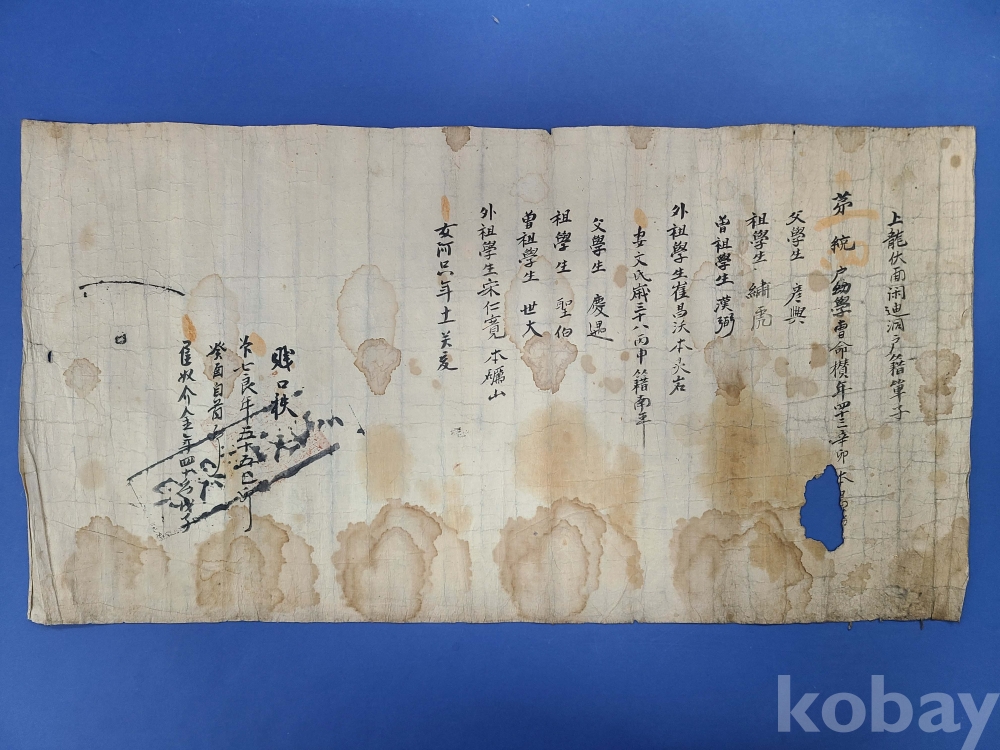 上龍伏面闲迪洞戶籍單子
第 統 戶幼學曺命攢年四十三辛卯本昌
父學生 彦興
祖學生 繡虎
曾祖學生 漢弼
外祖學生崔昌沃本灵岩
妻文氏歲三十八丙申籍南平
父學生 慶
祖學生 聖伯
曾祖學生 世大
外祖學生宋仁 本礪山
女阿只年十一
賤口秩
良年五十五己卯
癸酉自首
雇奴介金年四十 戊子
kobay